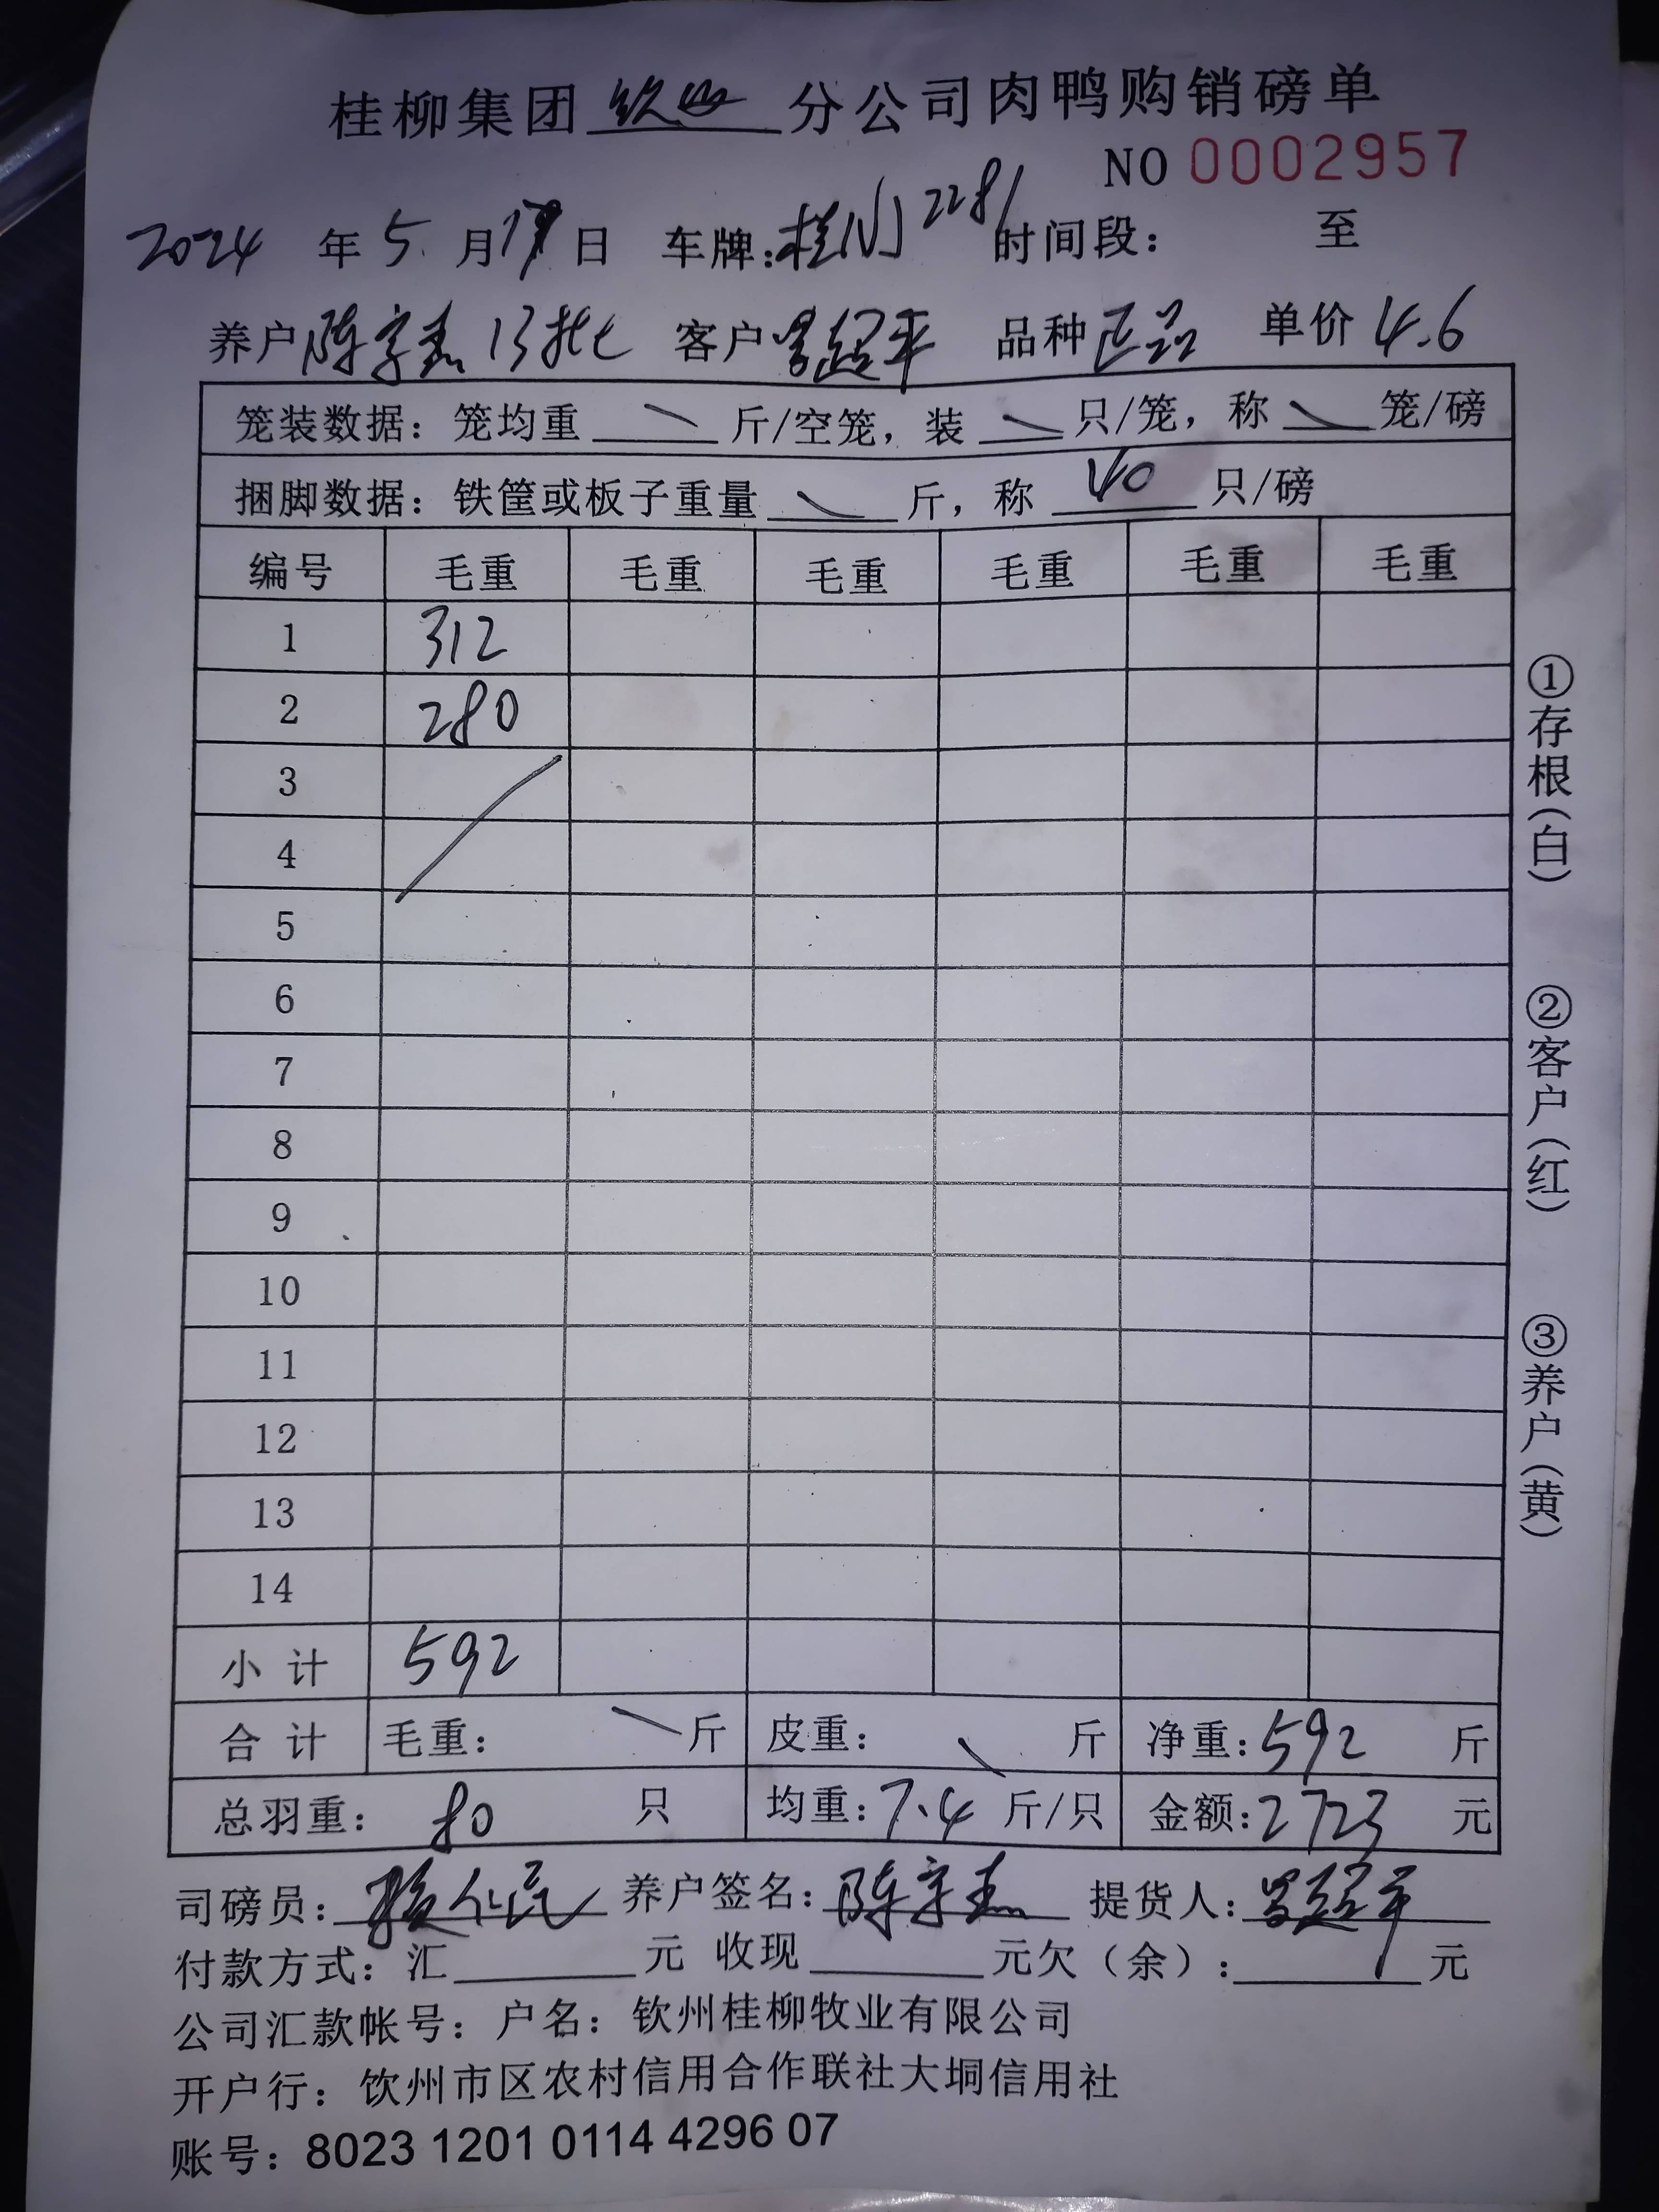 桂柳集团钦州分公司肉鸭购销磅单
NO 0002957
2024 年 5 月 19 日 车牌: 2281 时间段: 至
养户 陈宗杰 13批 客户 曾超平 品种 正品 单价 4.6
笼装数据: 笼均重 斤/空笼, 装 只/笼, 称 笼/磅
捆脚数据: 铁筐或板子重量 斤, 称 40 只/磅
编号 毛重 毛重 毛重 毛重 毛重 毛重
1 312
2 280
3
4
5
6
7
8
9
10
11
12
13
14
小计 592
合计 毛重: 斤 皮重: 斤 净重: 592 斤
总羽重: 80 只 均重: 7.4 斤/只 金额: 2723 元
司磅员: 养户签名: 陈宗杰 提货人: 曾超平
付款方式: 汇 元 收现 元欠(余): 元
公司汇款帐号: 户名: 钦州桂柳牧业有限公司
开户行: 钦州市区农村信用合作联社大垌信用社
账号: 8023 1201 0114 4296 07
①存根(白)
②客户(红)
③养户(黄)